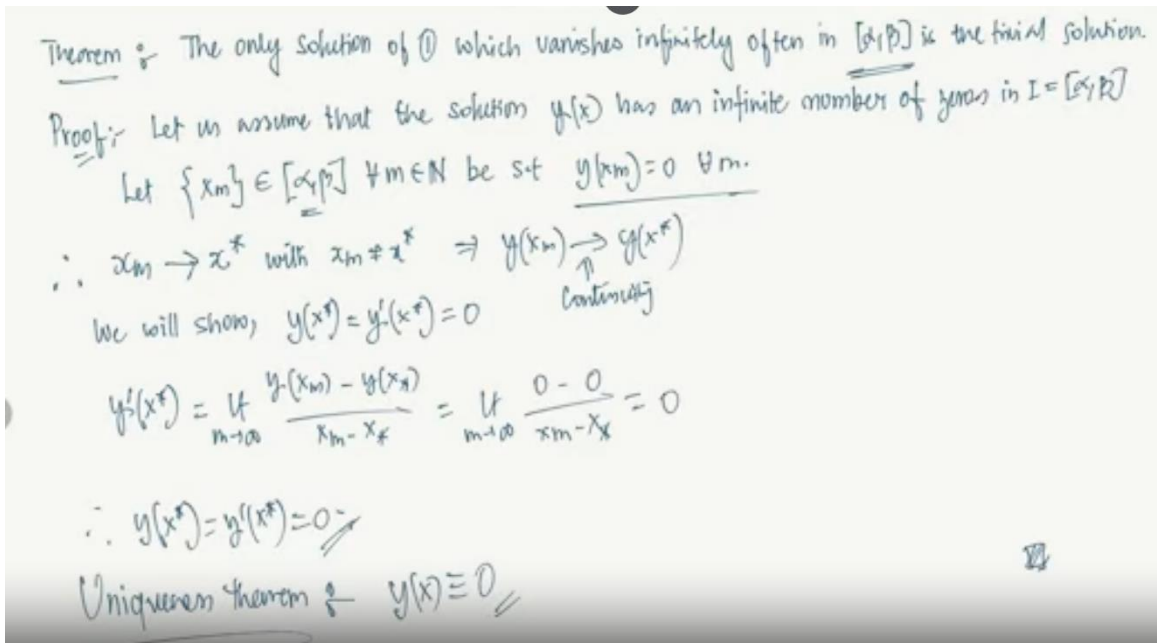 Theorem :- The only solution of ① which vanishes infinitely often in [α,β] is the trivial solution.
Proof:- Let us assume that the solution y(x) has an infinite number of zeros in I = [α,β]
Let {xm} ∈ [α,β] ∀ m ∈ N be s.t y(xm) = 0 ∀ m.
∴ xm → x* with xm ≠ x* ⇒ y(xm) → y(x*)
⇑
Continuity
We will show, y(x*) = y'(x*) = 0
y'(x*) = lt m→∞ (y(xm) - y(x*)) / (xm - x*) = lt m→∞ (0 - 0) / (xm - x*) = 0
∴ y(x*) = y'(x*) = 0
Uniqueness theorem :- y(x) ≡ 0